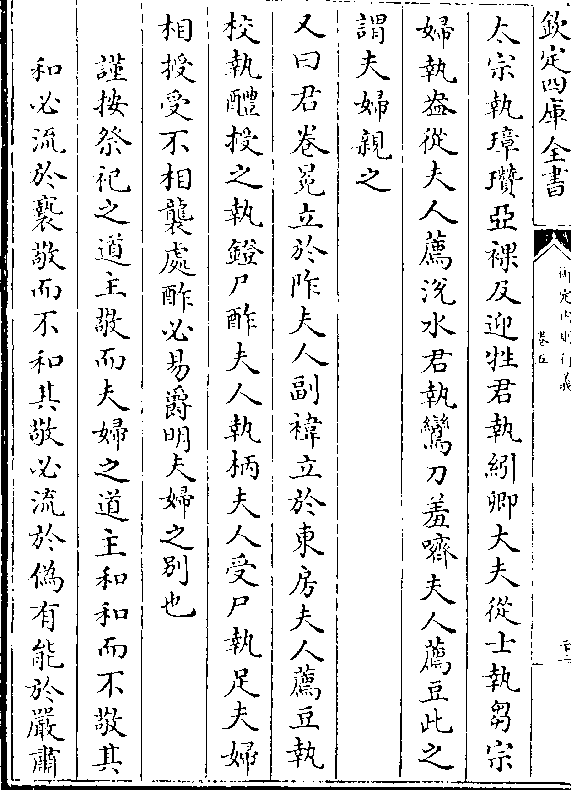 欽定四庫全書
御定內則衍義
卷五
太宗執璋瓚亞祼及迎牲君執紖卿大夫從士執芻宗
婦執盎從夫人薦涗水君執鸞刀羞嚌夫人薦豆此之
謂夫婦親之
又曰君卷冕立於阼夫人副褘立於東房夫人薦豆執
校執醴授之執鐙尸酢夫人執柄夫人受尸執足夫婦
相授受不相襲處酢必易爵明夫婦之別也
謹按祭祀之道主敬而夫婦之道主和和而不敬其
和必流於褻敬而不和其敬必流於偽有能於嚴肅